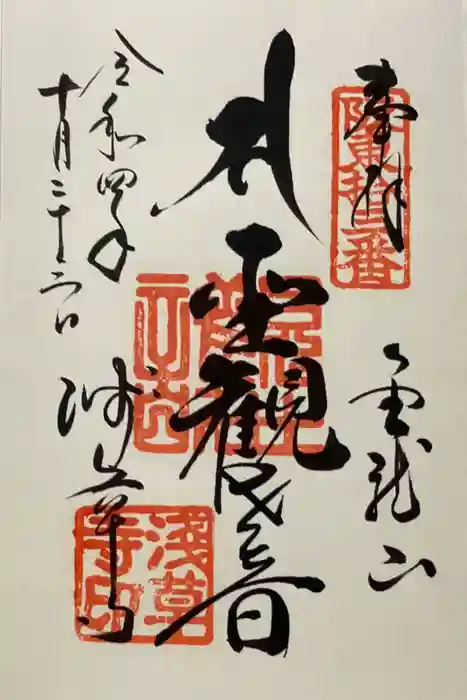 奉拝
坂東拾三番
金龍山
聖観世音
浅草寺
淺草寺印
令和四年
十月二十日